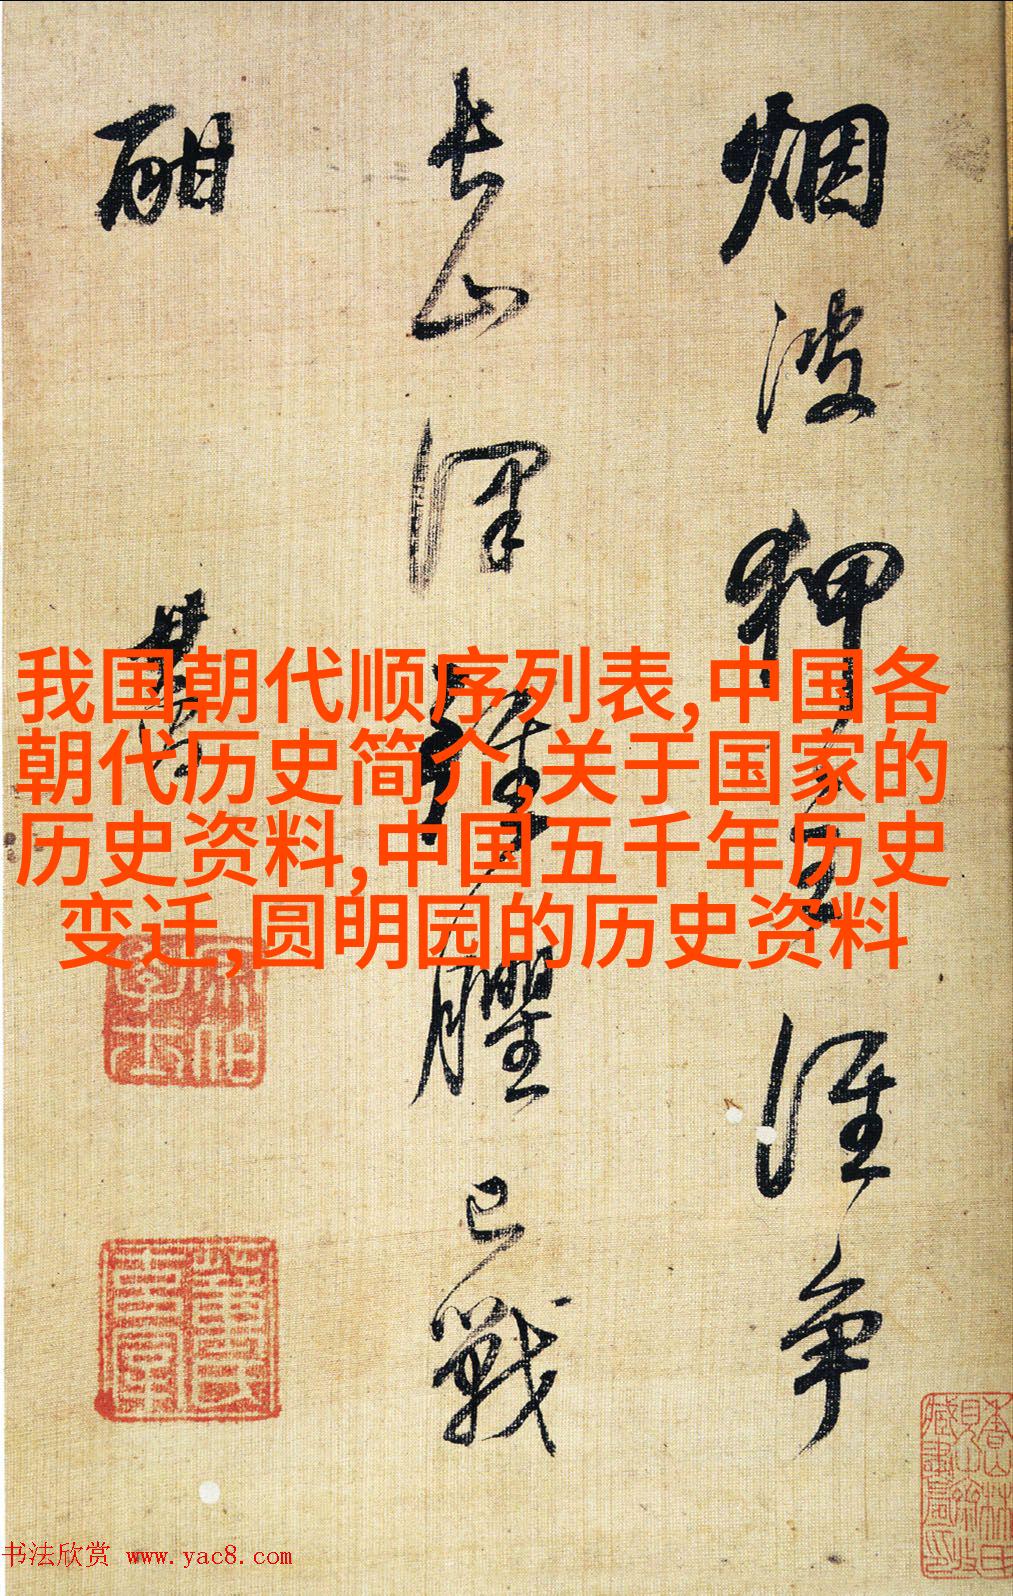 烟波狎主誰爭
長山澤雖臞已戰
酣
其昌
我国朝代顺序列表,中国各
朝代历史简介,关于国家的
历史资料,中国五千年历史
变迁,圆明园的历史资料
宗伯學士
书法欣赏 www.yac8.com